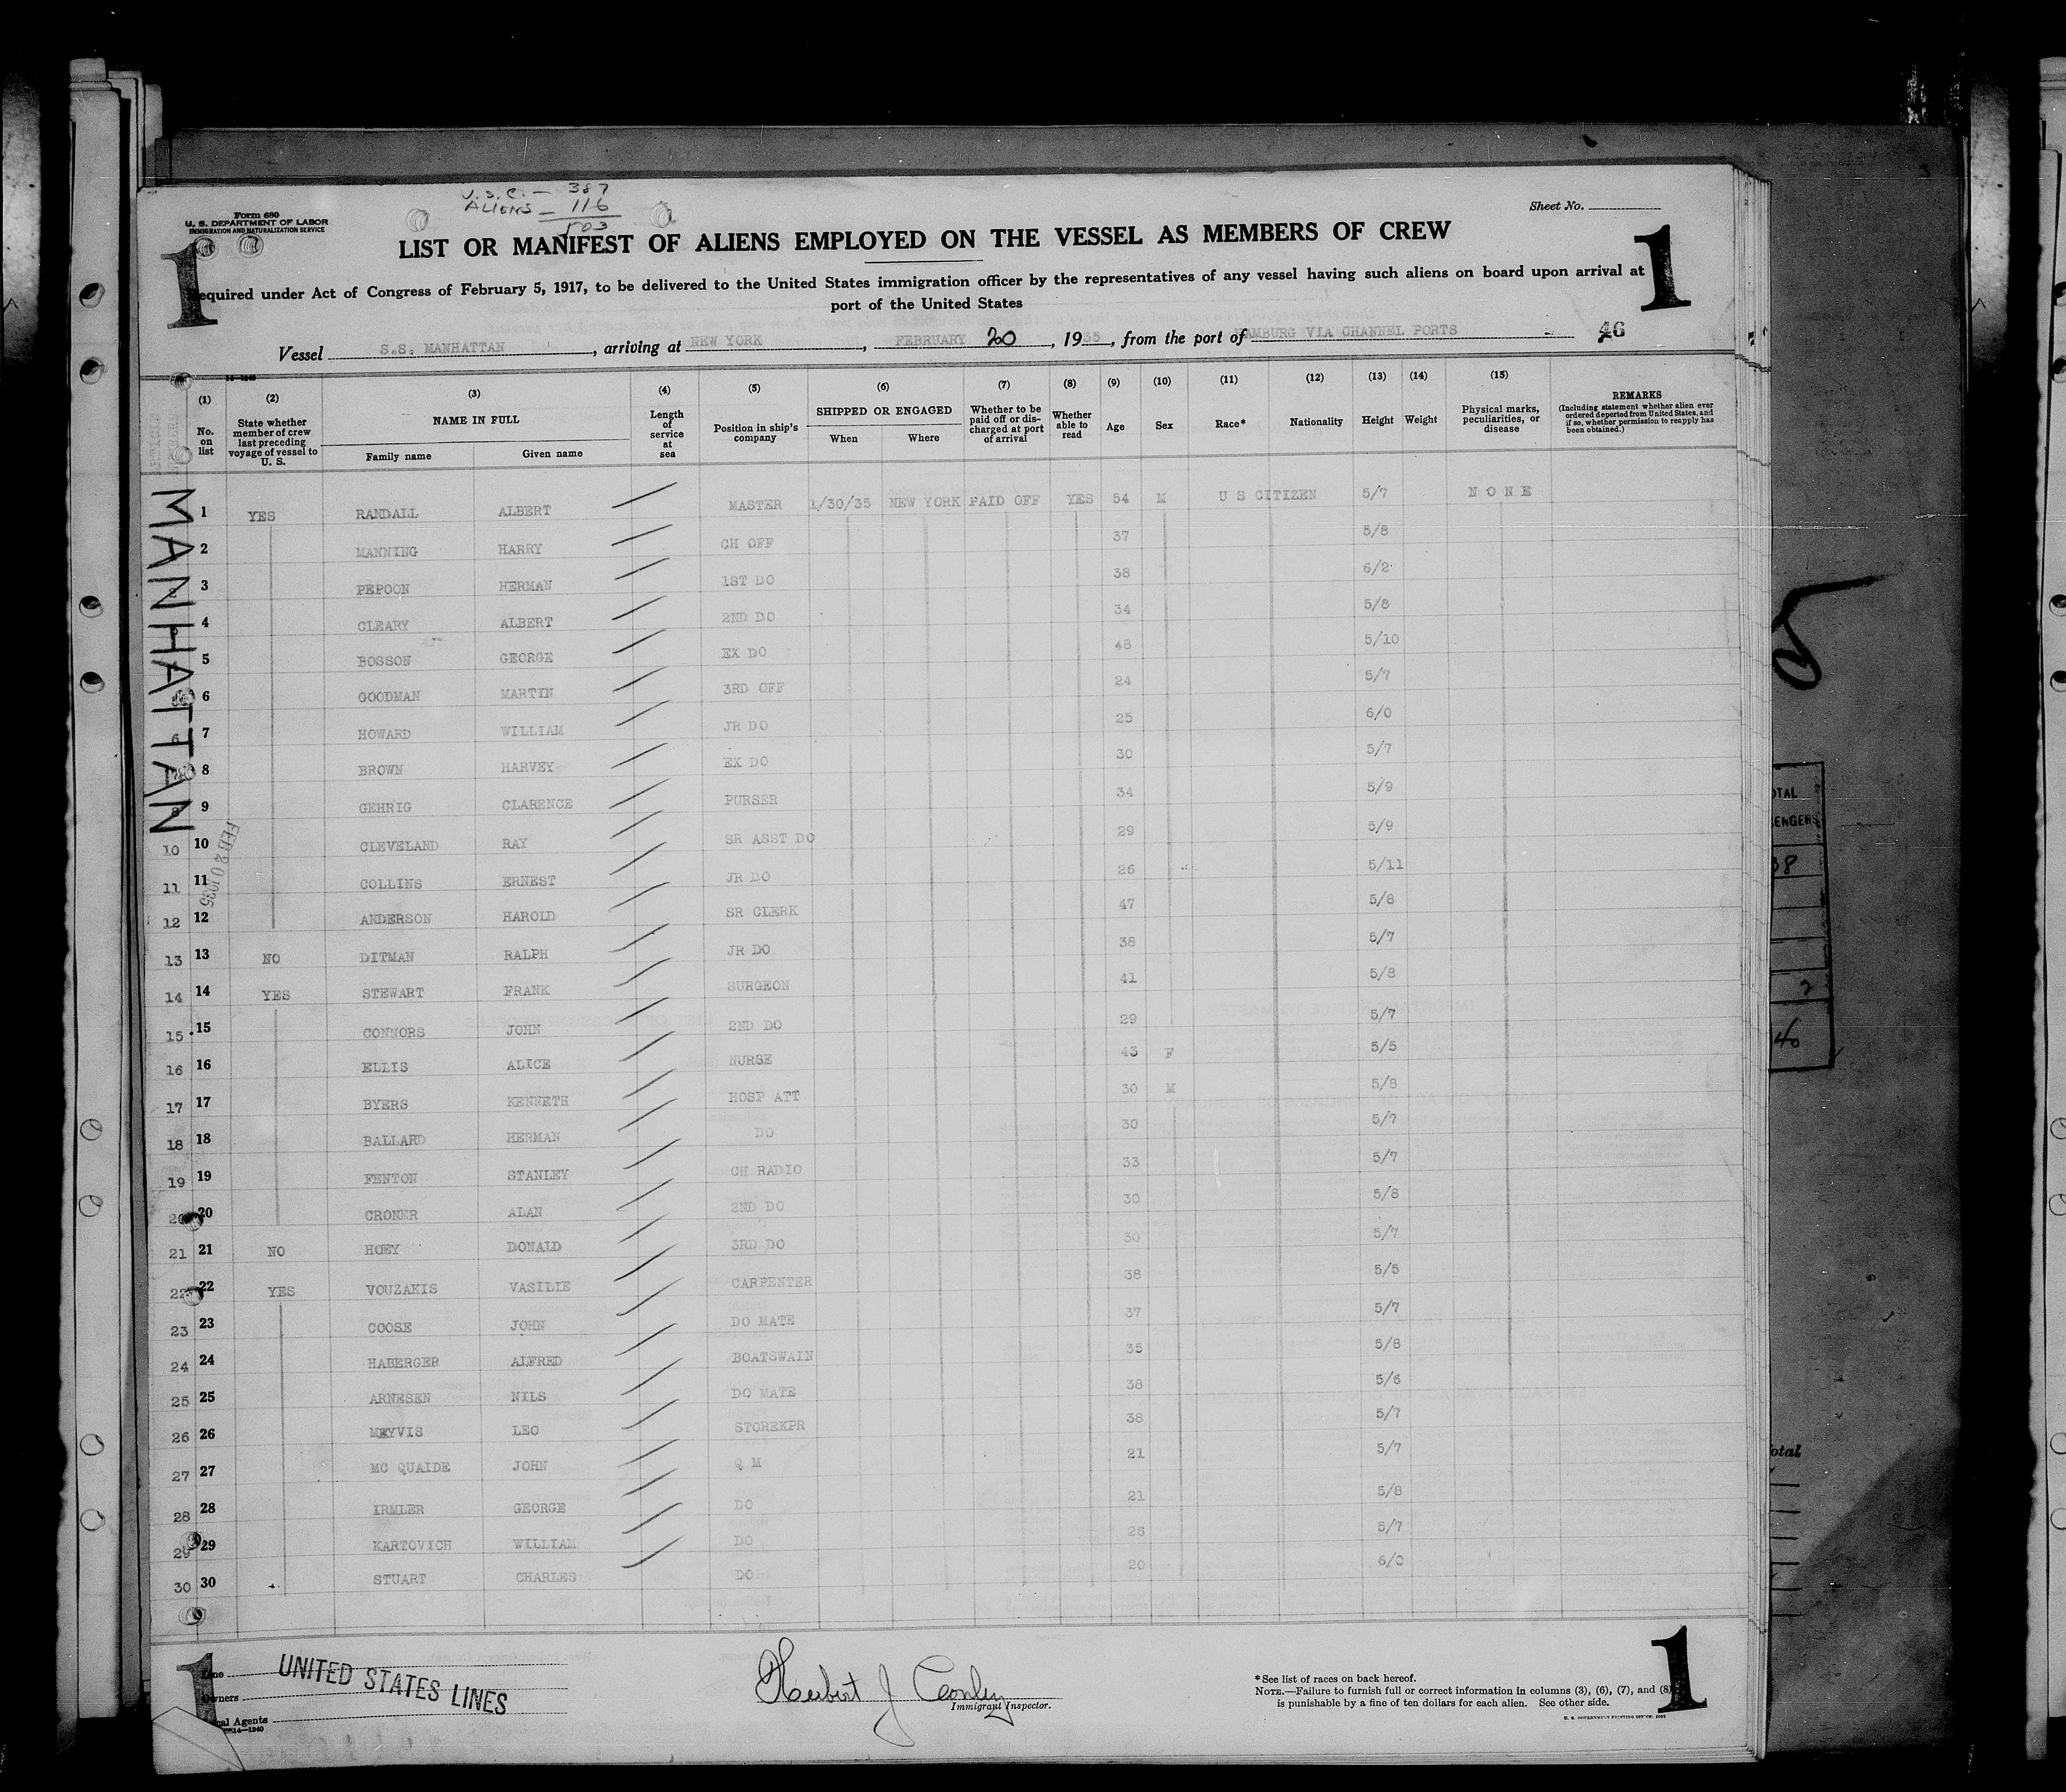 U.S.C. — 387
ALIENS — 116
503
Form 680
U. S. DEPARTMENT OF LABOR
IMMIGRATION AND NATURALIZATION SERVICE
Sheet No.
1 1
LIST OR MANIFEST OF ALIENS EMPLOYED ON THE VESSEL AS MEMBERS OF CREW
Required under Act of Congress of February 5, 1917, to be delivered to the United States immigration officer by the representatives of any vessel having such aliens on board upon arrival at
port of the United States
Vessel S.S. MANHATTAN, arriving at NEW YORK, FEBRUARY 20, 1935, from the port of HAMBURG VIA CHANNEL PORTS 46
(1) No. on list
(2) State whether member of crew last preceding voyage of vessel to U. S.
(3) NAME IN FULL Family name Given name
(4) Length of service at sea
(5) Position in ship's company
(6) SHIPPED OR ENGAGED When Where
(7) Whether to be paid off or discharged at port of arrival
(8) Whether able to read
(9) Age
(10) Sex
(11) Race*
(12) Nationality
(13) Height
(14) Weight
(15) Physical marks, peculiarities, or disease
REMARKS (Including statement whether alien ever ordered deported from United States, and if so, whether permission to reapply has been obtained.)
MANHATTAN
FEB 20 1935
1 YES RANDALL ALBERT MASTER 1/30/35 NEW YORK PAID OFF YES 54 M U S CITIZEN 5/7 NONE
2 MANNING HARRY CH OFF 37 5/8
3 PEPOON HERMAN 1ST DO 38 6/2
4 CLEARY ALBERT 2ND DO 34 5/8
5 BOSSON GEORGE EX DO 48 5/10
6 GOODMAN MARTIN 3RD OFF 24 5/7
7 HOWARD WILLIAM JR DO 25 6/0
8 BROWN HARVEY EX DO 30 5/7
9 GEHRIG CLARENCE PURSER 34 5/9
10 10 CLEVELAND RAY SR ASST DO 29 5/9
11 11 COLLINS ERNEST JR DO 26 5/11
12 12 ANDERSON HAROLD SR CLERK 47 5/8
13 13 NO DITMAN RALPH JR DO 38 5/7
14 14 YES STEWART FRANK SURGEON 41 5/8
15 15 CONNORS JOHN 2ND DO 29 5/7
16 16 ELLIS ALICE NURSE 43 F 5/5
17 17 BYERS KENNETH HOSP ATT 30 M 5/8
18 18 BALLARD HERMAN DO 30 5/7
19 19 FENTON STANLEY CH RADIO 33 5/7
20 20 CRONER ALAN 2ND DO 30 5/8
21 21 NO HOEY DONALD 3RD DO 30 5/7
22 22 YES VOUZAKIS VASILIE CARPENTER 38 5/5
23 23 COOSE JOHN DO MATE 37 5/7
24 24 HABERGER ALFRED BOATSWAIN 35 5/8
25 25 ARNESEN NILS DO MATE 38 5/6
26 26 MEYVIS LEO STOREKPR 38 5/7
27 27 MC QUAIDE JOHN Q M 21 5/7
28 28 IRMLER GEORGE DO 21 5/8
29 29 KARTOVICH WILLIAM DO 26 5/7
30 30 STUART CHARLES DO 20 6/0
1 1
Line
Owners
Local Agents
14—1240
UNITED STATES LINES
Herbert J
Immigrant Inspector.
*See list of races on back hereof.
NOTE.—Failure to furnish full or correct information in columns (3), (6), (7), and (8)
is punishable by a fine of ten dollars for each alien. See other side.